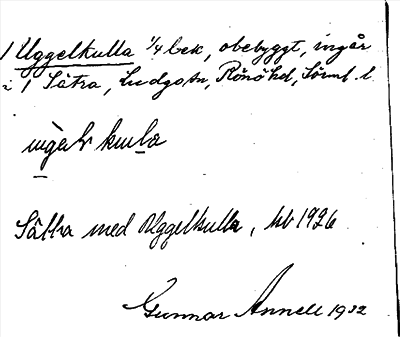 1 Uggelkulla 1/4 bek, obebyggt, ingår
i 1 Sätra, Ludgo sn, Rönö hd, Sörml. l.
Sättra med Uggelkulla, kb 1926
Gunnar Annell 1932